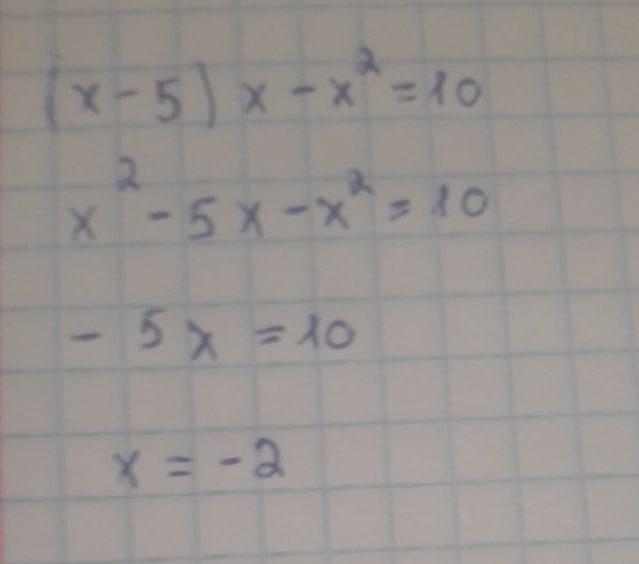 (x-5)x-x²=10
x²-5x-x²=10
-5x=10
x=-2